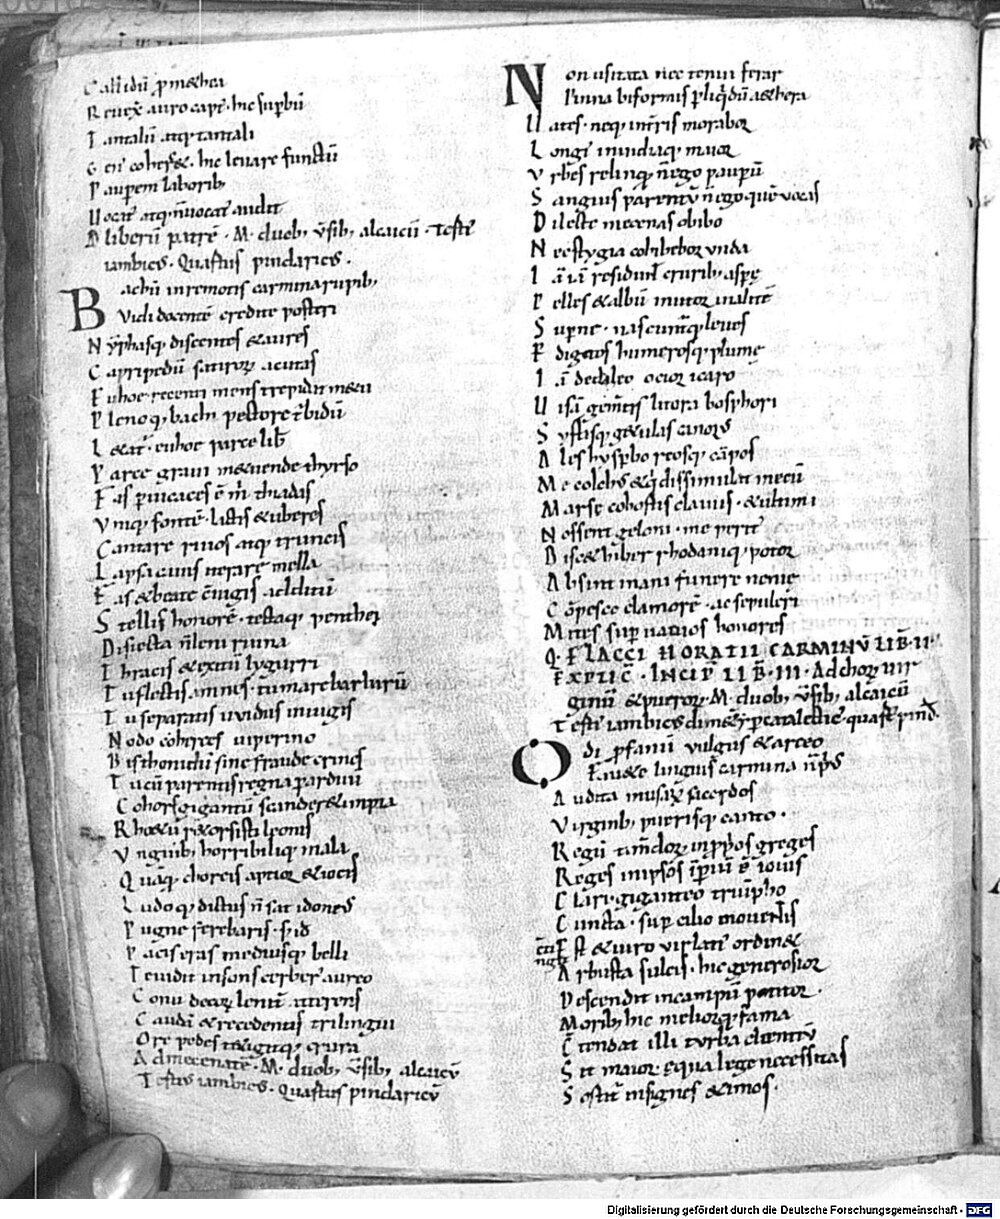 Callidū ꝓmethea
Reuex̄ auro capt᷒ · hic suꝑbū
Tantalū atq; tantali
Gen᷒ cohercet · hic leuare functū
Pauꝑem laborib;
Uocat᷒ atq; n̄ uocat᷒ audit
Ad liberū patrē · M · duob; v̄sib; alcaicū · Testi᷒
iambic᷒ · Quart᷒ pindaric᷒ .
Bachū in remotis carmina rupib;
Vidi docentē credite posteri
Nȳphasq; discentes & aures
Capripedū satiroꝝ acutas
Euhoe recenti mens trepidat metu
Plenoq; bachi pectore t᷒bidū
L&at᷒ · euhoe parce lib̄
Parce graui metuende thyrso
Fas ꝑuicaces ē m̄ thiadas
Vinq; fontē · lactis & uberes
Cantare riuos atq; truncis
Lapsa cauis iterare mella
Fas & beate c̄iugis additū
Stellis honorē · tectaq; penthei
Disiecta n̄ leni ruina
Thracis & exitiū lygurri
Tu flectis amnes · tu mare barbarū
Tu separatis uuidus in iugis
Nodo coherces uiperino
Bisthonidū sine fraude crines
Tu cū parentis regna ꝑ arduū
Cohors gigantū scander& impia
Rhoetū r&orsisti leonis
Vnguib; horribiliq; mala
Quāq; choreis aptior & iocis
Ludoq; dictus n̄ sat idone᷒
Pugne ferebaris · s; id
Pacis eras mediusq; belli
Te uidit insons cerber᷒ aureo
Cornu decoꝝ leniē atterens
Caudā & recedentis trilingui
Ore pedes tetigitq; crura
Ad mecenatē · M · duob; v̄sib; alcaicū
Testi᷒ iambic᷒ · Quart᷒ pindaricū
Non usitata nec tenui ferar
Pinna biformis ꝑ liq̇dū aethera
Uates · neq; in t᷒ris morabor
Longi᷒ inuidiaq; maior
Vrbes relinquā n̄ ego pauꝑū
Sanguis parentū n̄ ego · quē uocas
Dilecte mecenas obibo
Nec stygia cohibebor unda
Iā iā residunt crurib; aspę
Pelles & albū mutor in alitē
Suꝑne · nascunt᷒q; leues
P digitos humerosq; plume
Iā dedaleo ocior icaro
Uisā gem̄tis litora bosphori
Syrtisq; getulas canor᷒
Ales hyꝑboreosq; cāpos
Me colch᷒ & q̇ dissimulat metū
Marse cohortis dac᷒ · & ultimi
Noscent geloni · me perit᷒
Disc& hiber rhodaniq; potor
Absint inani funere nenie
Cōpesce clamorē · ac sepulcri
Mittes suꝑuacuos honores
Q · FLACCI HORATII CARMINŪ LIB̄ · II ·
EXPLIC̄ · INCIP̄ LIB̄ · III · Ad choꝝ uir
ginū & pueroꝝ · M · duob; v̄sib; alcaicū
Testi᷒ iambic᷒ dimet᷒ ypercatalectic᷒ quart᷒ pind᷒
Odi ꝓfanū vulgus & arceo
Fauete linguis carmina n̄ pri᷒
Audita musaꝝ sacerdos
Virginib; puerisq; canto ·
Regū timendoꝝ in ꝓprios greges
Reges in ipsos īꝑiū ē iouis
Clari giganteo triūpho
Cuncta · suꝑcilio mouentis
Est & uiro uir lati᷒ ordinet
Arbusta sulcis · hic generosior
Descendit in campū petitor ·
Morib; hic meliorq; fama
Cc̄tendat illi turba clientū
Sit maior equa lege necessitas
Sortit᷒ insignes & imos ·
Digitalisierung gefördert durch die Deutsche Forschungsgemeinschaft - DFG